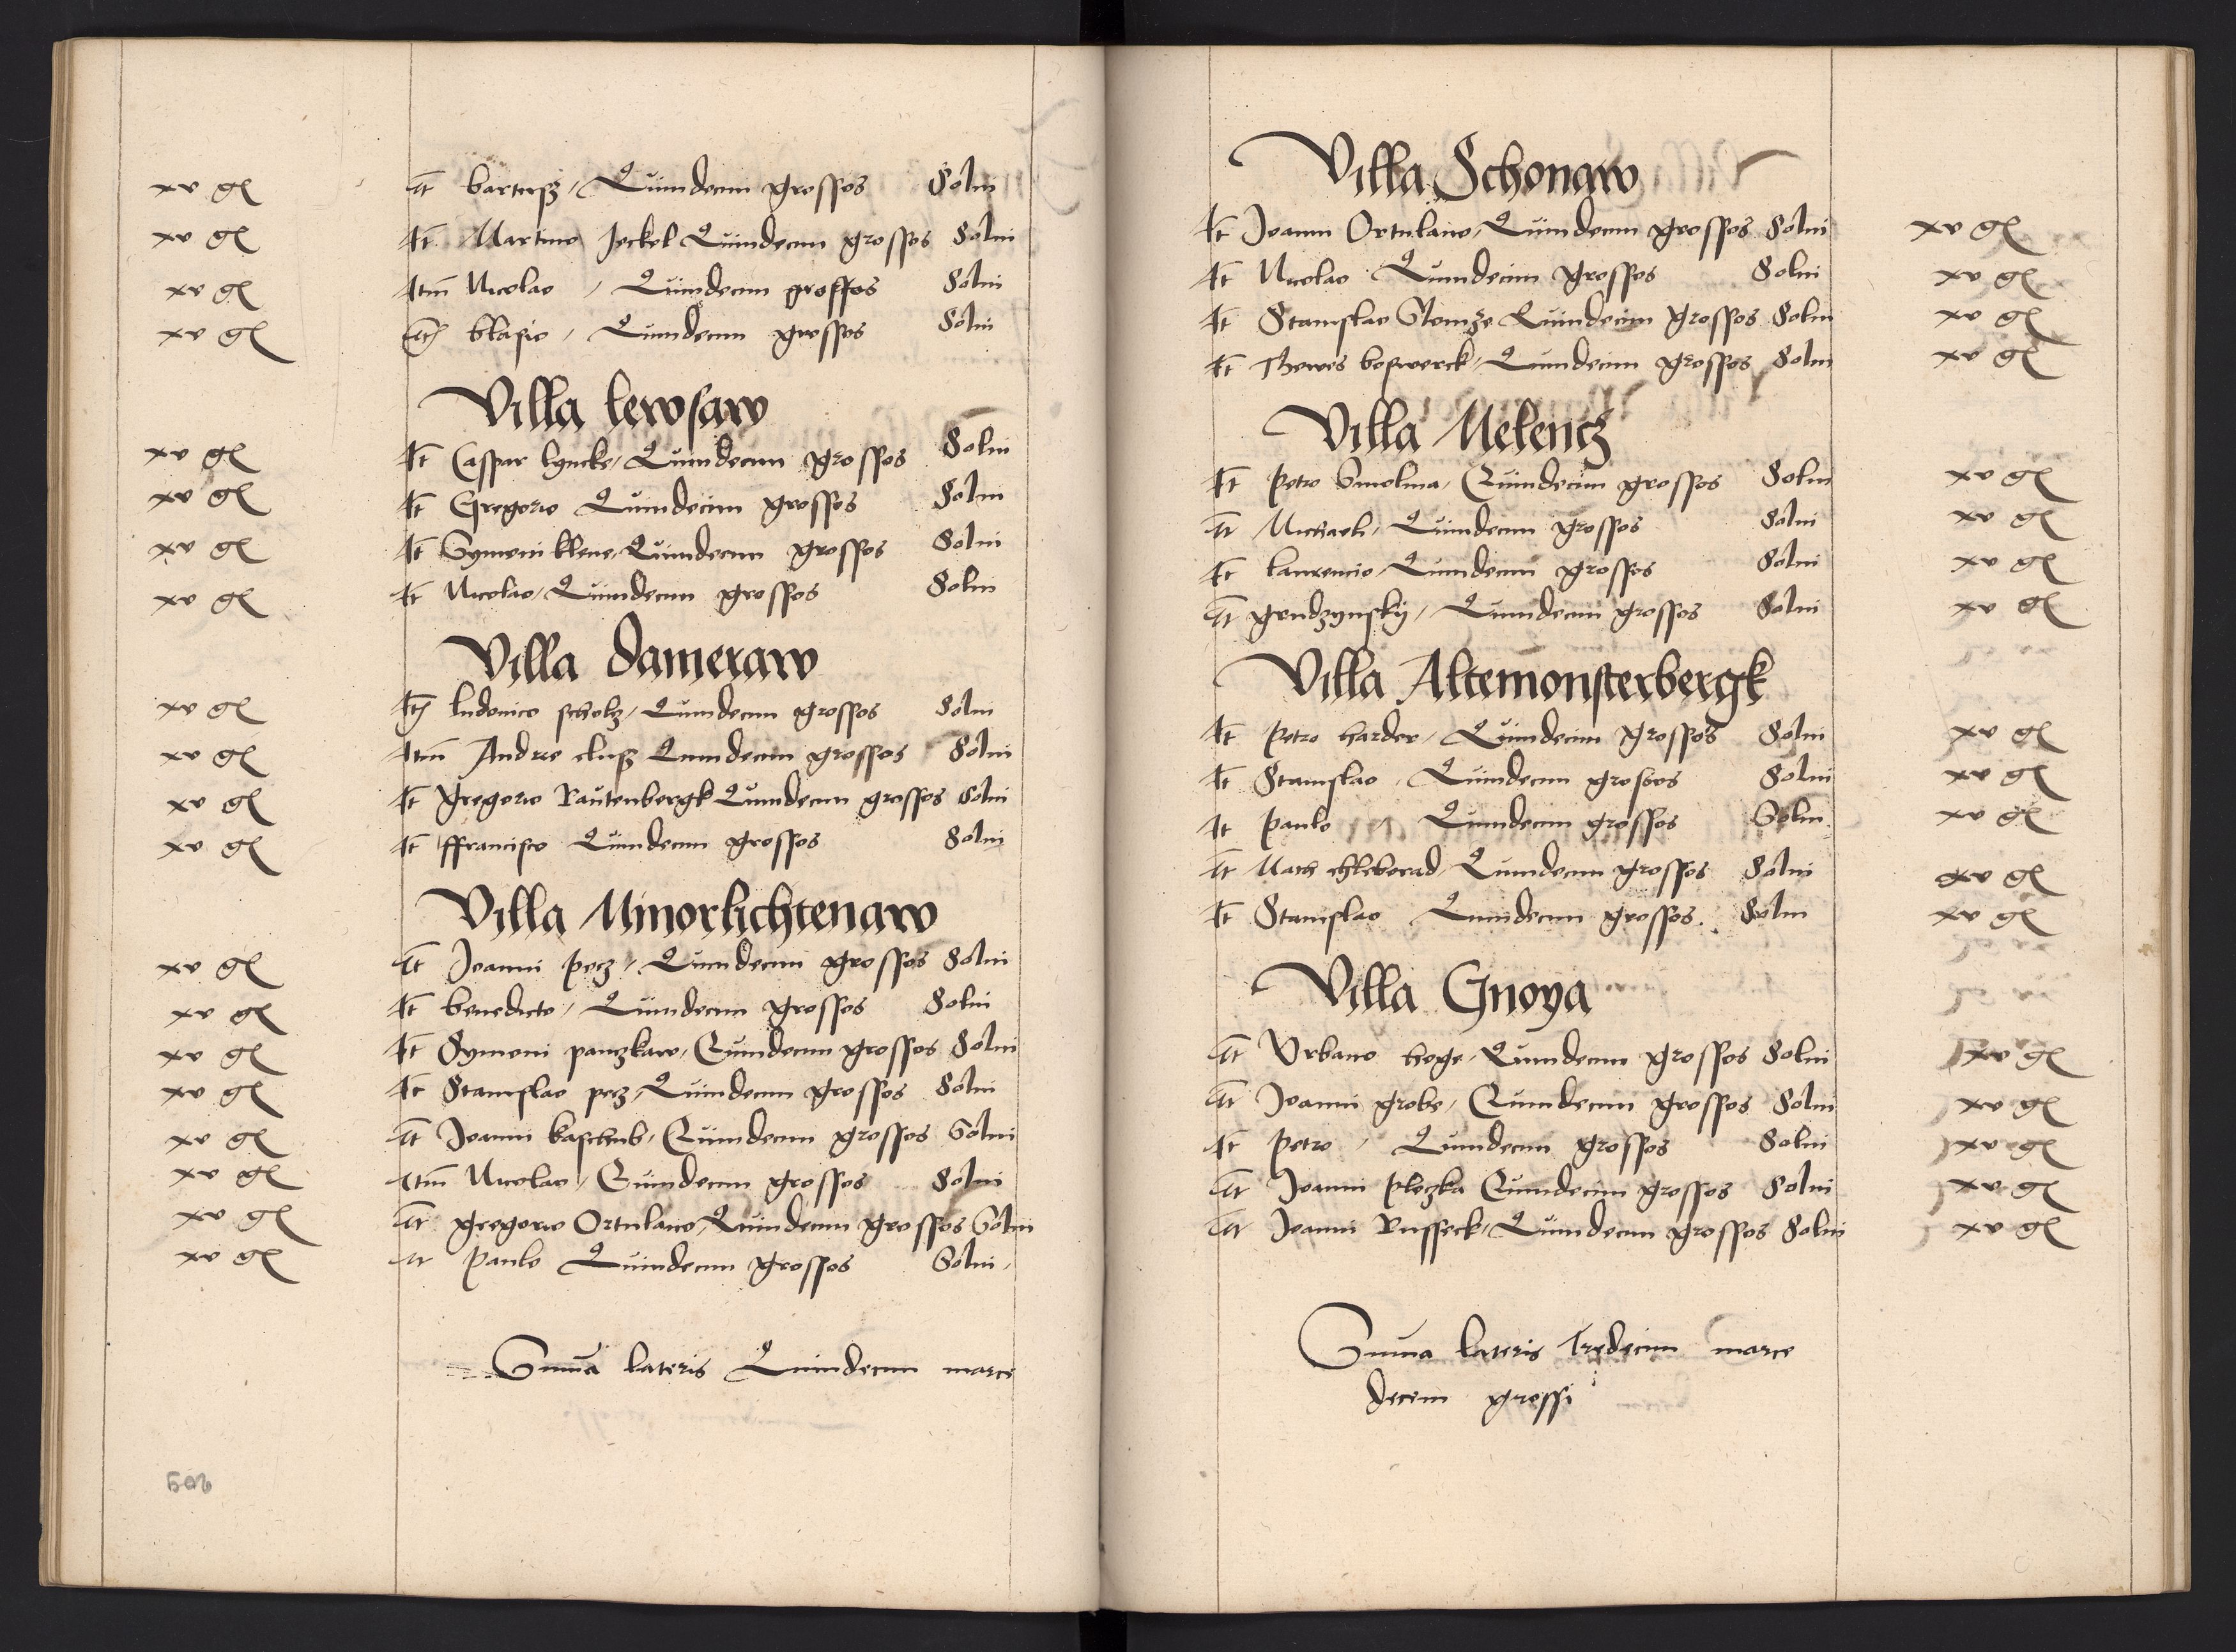 xv gl It bartusz / Quindecim grossos Solui
xv gl It Martino Jeckel Quindecim grossos Solui
xv gl Itm Nicolao / Quindecim grossos Solui
xv gl It blasio / Quindecim grossos Solui
Villa lewsaw
xv gl It Caspar lyncke / Quindecim grossos Solui
xv gl It Gregorio Quindecim grossos Solui
xv gl It Symoni klene / Quindecim grossos Solui
xv gl It Nicolao / Quindecim grossos Solui
Villa Dameraw
xv gl It ludouico scholz / Quindecim grossos Solui
xv gl Itm Andree clusz Quindecim grossos Solui
xv gl It gregorio Rautenbergk Quindecim grossos Solui
xv gl It ffrancisco Quindecim grossos Solui
Villa Minorlichtenaw
xv gl It Joanni pecz / Quindecim grossos Solui
xv gl It benedicto / Quindecim grossos Solui
xv gl It Symoni panczkaw / Quindecim grossos Solui
xv gl It Stanislao pecz / Quindecim grossos Solui
xv gl It Joanni kaschub / Quindecim grossos Solui
xv gl Itm Nicolao / Quindecim grossos Solui
xv gl It gregorio Ortulano / Quindecim grossos Solui
xv gl It paulo Quindecim grossos Solui
Suma lateris Quindecim marce
Villa Schonaw
It Joanni Ortulano / Quindecim grossos Solui xv gl
It Nicolao Quindecim grossos Solui xv gl
It Stanislao Quindecim grossos Solui xv gl
It Thewes boswerck / Quindecim grossos Solui xv gl
Villa Melencz
It petro Smolina / Quindecim grossos Solui xv gl
It Michaeli / Quindecim grossos Solui xv gl
It laurencio / Quindecim grossos Solui xv gl
It grudzynsky / Quindecim grossos Solui xv gl
Villa Altemonsterbergk
It petro harder / Quindecim grossos Solui xv gl
It Stanislao / Quindecim grossos Solui xv gl
It paulo / Quindecim grossos Solui xv gl
It Math chleborad / Quindecim grossos Solui xv gl
It Stanislao Quindecim grossos Solui xv gl
Villa Gnoya
It Vrbano hoge / Quindecim grossos Solui xv gl
It Joanni grobe / Quindecim grossos Solui xv gl
It petro / Quindecim grossos Solui xv gl
It Joanni pleczka Quindecim grossos Solui xv gl
It Joanni Russeck / Quindecim grossos Solui xv gl
Suma lateris Tredecim marce
decem grossi